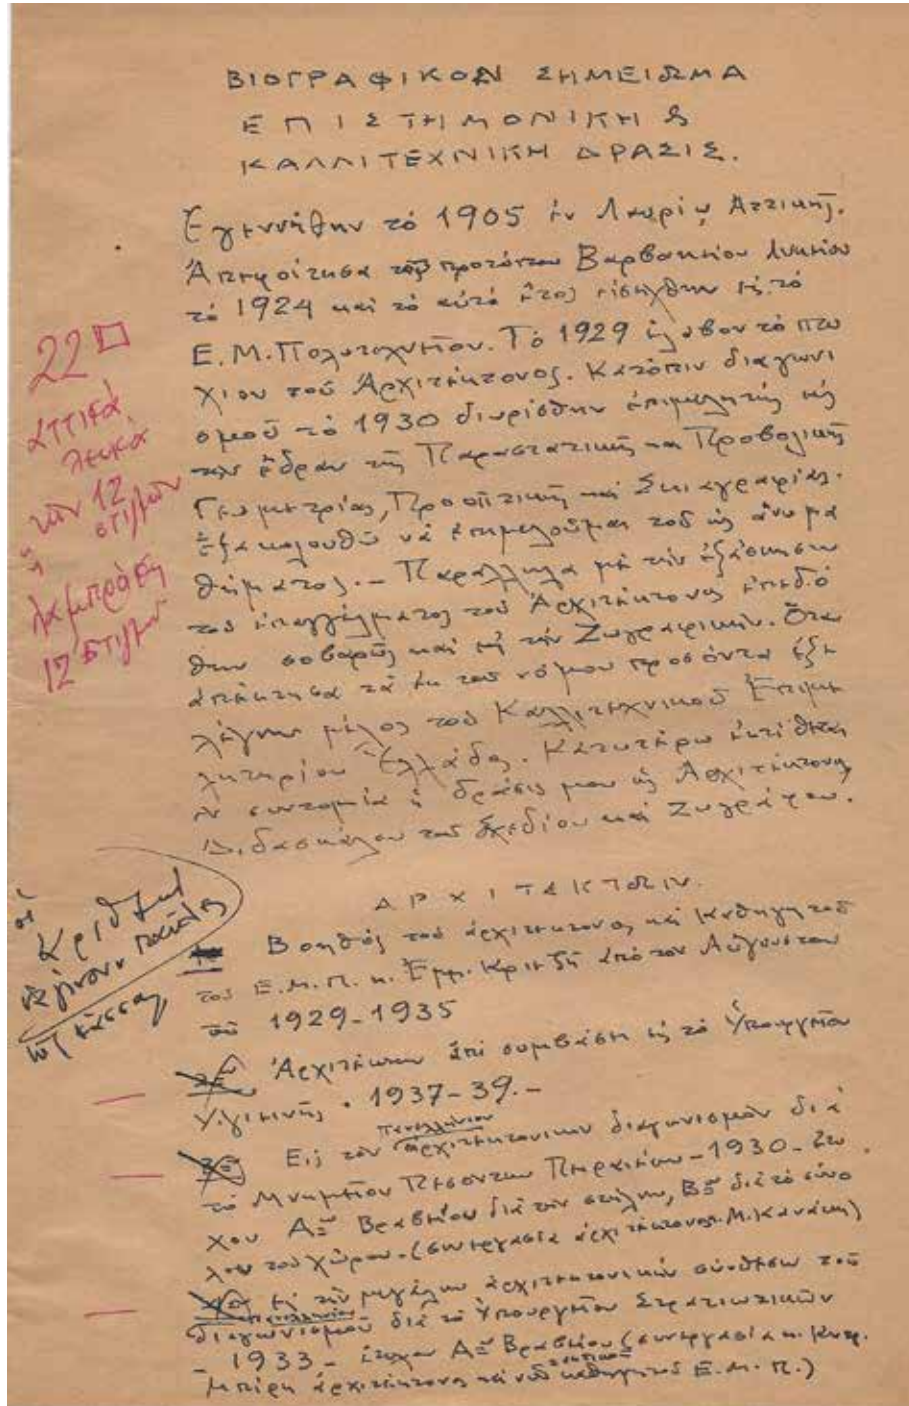 ΒΙΟΓΡΑΦΙΚΟΝ ΣΗΜΕΙΩΜΑ
ΕΠΙΣΤΗΜΟΝΙΚΗ &
ΚΑΛΛΙΤΕΧΝΙΚΗ ΔΡΑΣΙΣ.
Ἐγεννήθην τό 1905 ἐν Λαυρίῳ Ἀττικῆς.
Ἀπεφοίτησα τοῦ προτύπου Βαρβακείου Λυκείου
τό 1924 καί τό αὐτό ἔτος εἰσήχθην εἰς τό
Ε.Μ.Πολυτεχνεῖον. Τό 1929 ἔλαβον τό πτυ
χίον τοῦ Ἀρχιτέκτονος. Κατόπιν διαγωνι
σμοῦ τό 1930 διωρίσθην ἐπιμελητής εἰς
τήν ἕδραν τῆς Παραστατικῆς και Προβολικῆς
Γεωμετρίας, Προοπτικῆς καί Σκιαγραφίας.
Ἐξακολουθῶ νά ἐπιμελοῦμαι τοῦ ὡς ἄνω μα
θήματος. — Παράλληλα μέ τήν ἐξάσκησιν
τοῦ ἐπαγγέλματος τοῦ Ἀρχιτέκτονος ἐπεδό
θην σοβαρῶς καί εἰς τήν Ζωγραφικήν. Ὅταν
ἀπέκτησα τά ἐκ τοῦ νόμου προσόντα ἐξε
λέγην μέλος τοῦ Καλλιτεχνικοῦ Ἐπιμε
λητηρίου Ἑλλάδος. Κατωτέρω ἐκτίθεται
ἐν συντομίᾳ ἡ δρᾶσις μου ὡς Ἀρχιτέκτονος,
Διδασκάλου τοῦ Σχεδίου καί Ζωγράφου.
22 □
ἀττικά
λευκά
τῶν 12
στιγμῶν
ἤ
λαμπράκη
12 στιγμῶν
ΑΡΧΙΤΕΚΤΩΝ.
Βοηθός τοῦ ἀρχιτέκτονος καί Καθηγητοῦ
τοῦ Ε.Μ.Π. κ. Ἐμμ. Κριεζῆ ἀπό τον Αὔγουστον
τοῦ 1929-1935
οἱ
ἀριθμοί
νά γίνουν παύλες
τῆς κάσσας
Ἀρχιτέκτων ἐπί συμβάσει εἰς τό Ὑπουργεῖον
Ὑγιεινῆς. 1937-39.-
Πανελλήνιον
Εἰς τόν ἀρχιτεκτονικόν διαγωνισμόν διά
τό Μνημεῖον Πεσόντων Πειραιέων - 1930 - ἔτυ
χον Αον Βραβείου διά τήν στήλην, Βον διά τό σύνο
λον τοῦ χώρου. (συνεργασία ἀρχιτέκτονος Μ. Κανάκη)
Εἰς τήν μεγάλην ἀρχιτεκτονικήν σύνθεσιν τοῦ
πανελληνίου
διαγωνισμοῦ διά τό Ὑπουργεῖον Στρατιωτικῶν
- 1933 - ἔτυχον Αον Βραβείου (συνεργασία κ. Κυπρ.
Μπίρη ἀρχιτέκτονος καί νῦν τακτικοῦ καθηγητοῦ Ε.Μ.Π.)